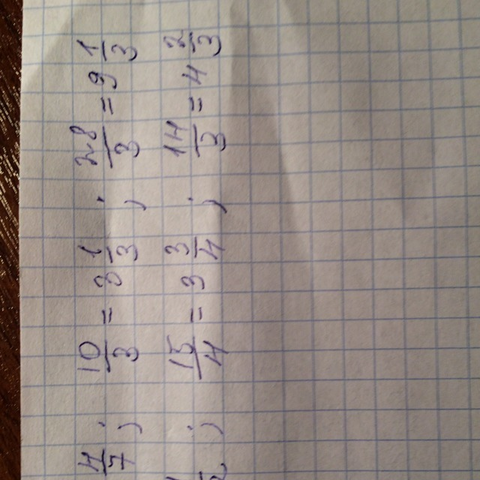 4/7 ; 10/3 = 3 1/3 ; 28/3 = 9 1/3
; 15/4 = 3 3/4 ; 14/3 = 4 2/3